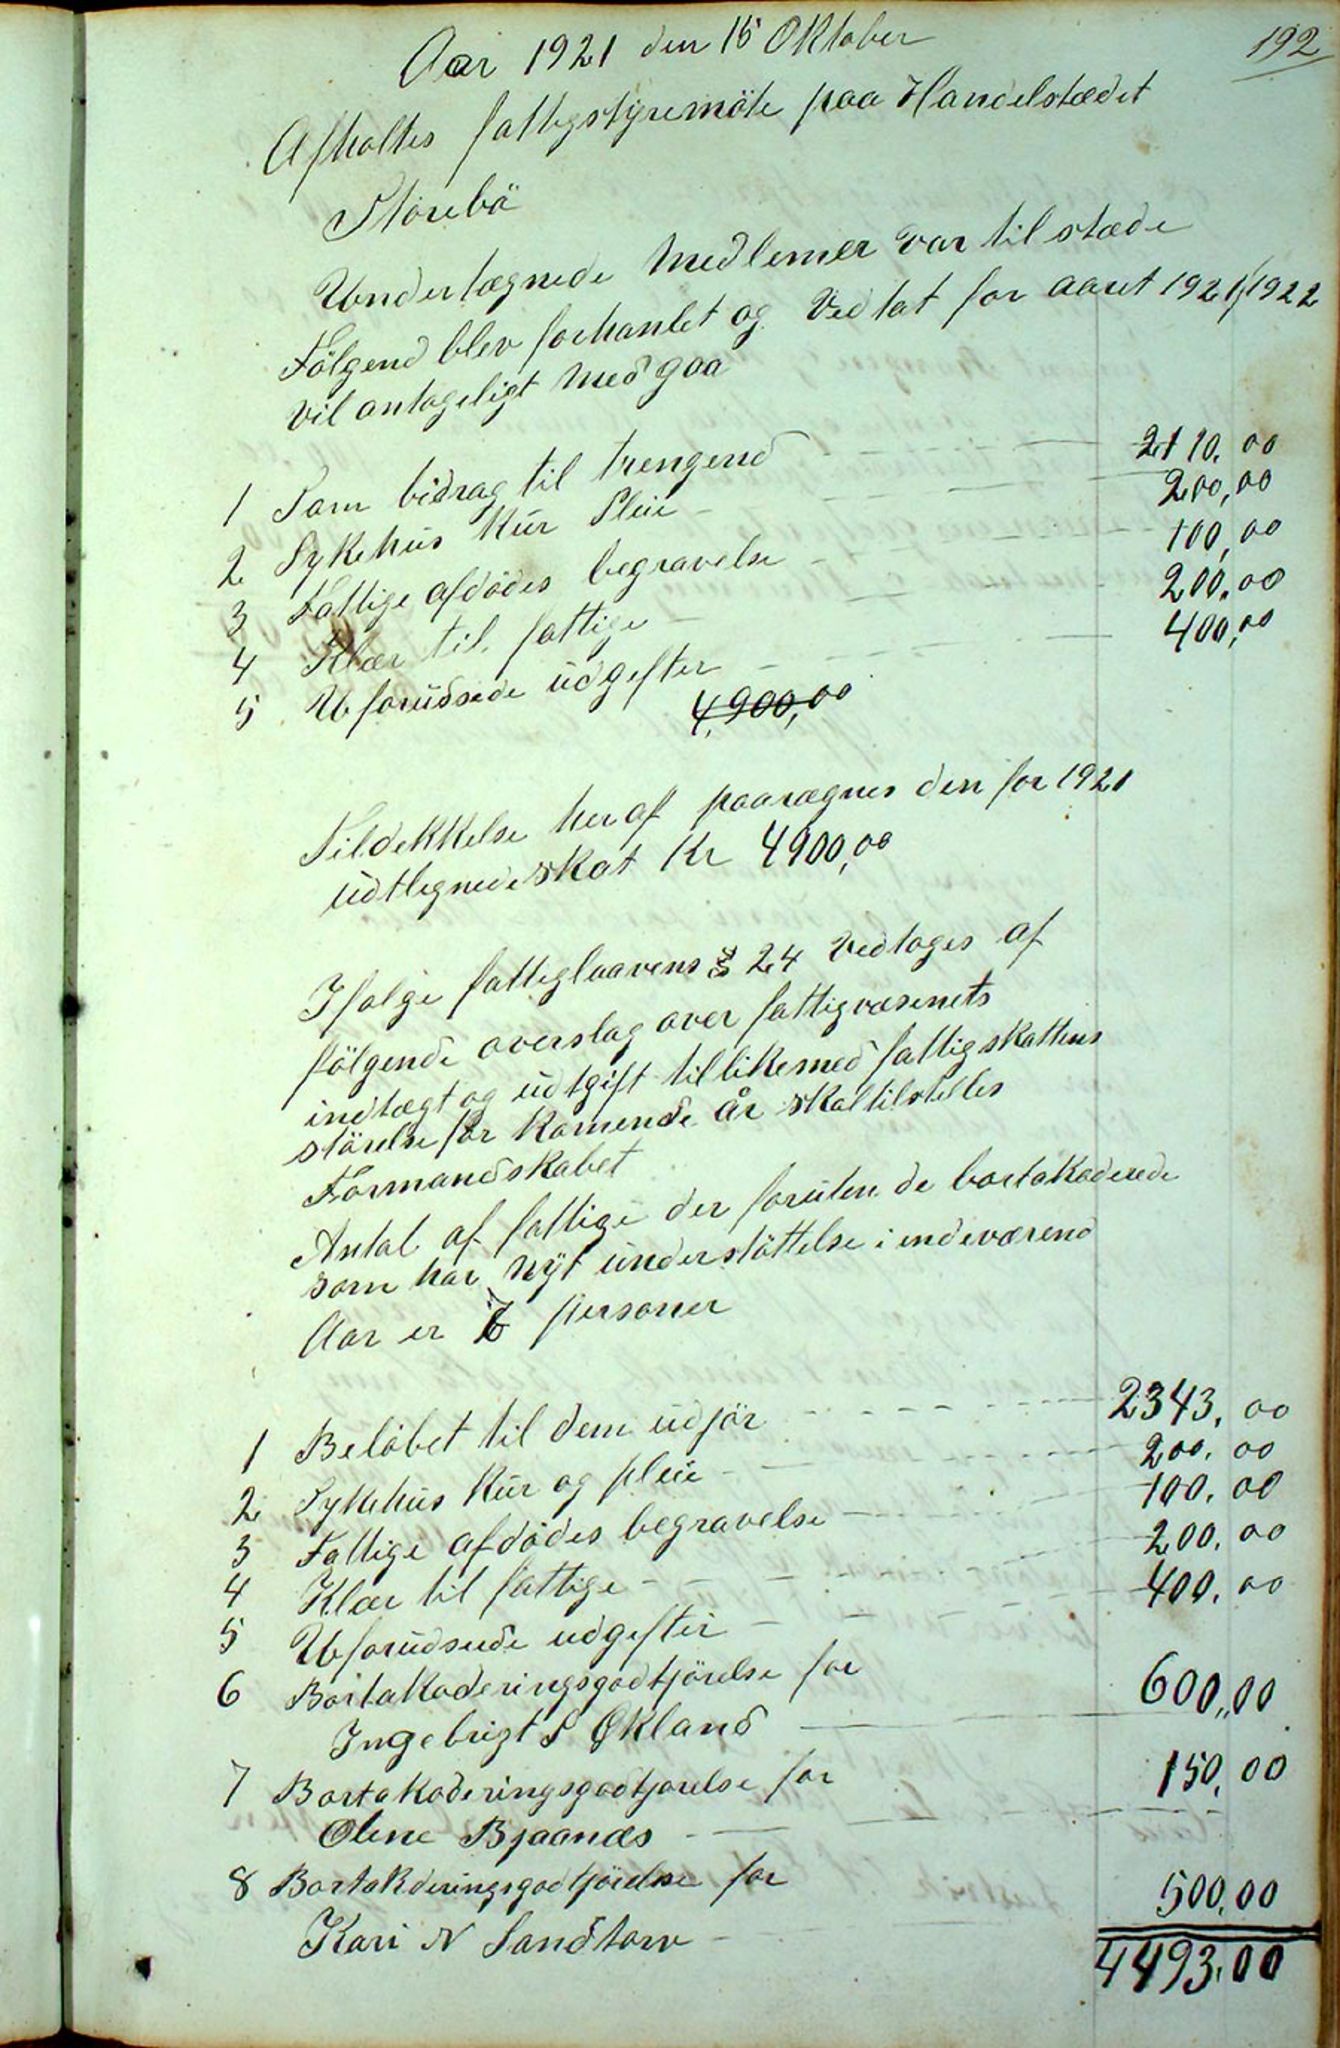 192
Aar 1921 den 15 Oktober
Afholtes fattigstyremöte paa Handelstædet
Storebö
Undertægnede Medlemer var til stæde
Fölgend blev forhanlet og Vedtat for aaret 1921/1922
vil antageligt Medgaa
1 Som bidrag til trengend 2110.00
2 Sykehus Kur Pleie 200,00
3 Fattige afdödes begravelse 100,00
4 Klær til fattige 200.00
5 Uforudsede udgefter 400,00
4,900,00
Tildekkelse heraf paaregnes den for 1921
udtlegnede skat Kr 4900,00
Ifölge fattiglaavens § 24 Vedtoges af
fölgende overslag over fattigvæsenets
indtægt og udtgift tillikemed fattigskattens
störelse for Komende år skal tilstilles
Formandskabet
Antal af fattige der foruten de bortakoderede
som har nyt understöttelse i indeværend
Aar er personer
1 Belöbet til dem udjör 2343,00
2 Sykehus Kur og pleie 200.00
3 Fattige afdödes begravelse 100.00
4 Klær til fattige 200.00
5 Uforudsede udgefter 400.00
6 Bortakoderingsgodtjörelse for
Ingebrigt S Økland 600,00
7 Bortakoderingsgodtjorelse for
Oline Bjaanæs 150,00
8 Bortakderingsgodtjörelse for
Kari N Sandtorv 500,00
4493,00